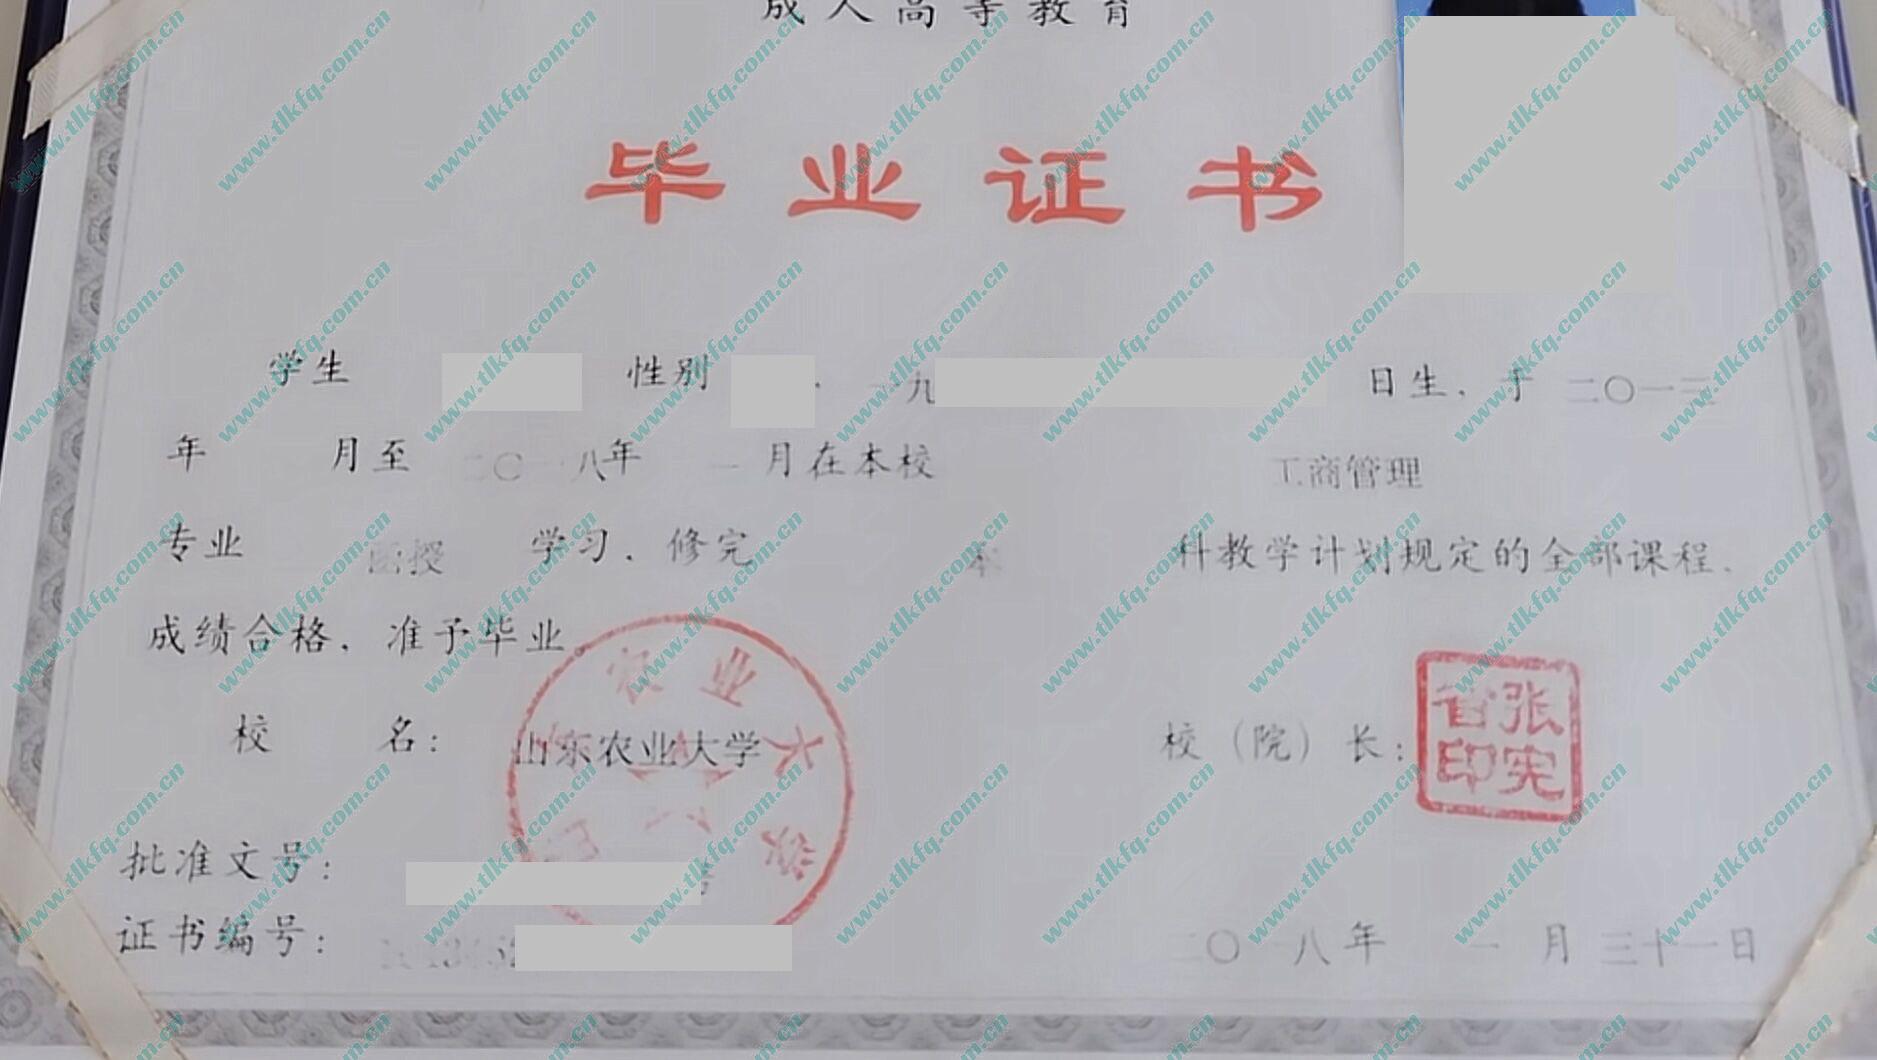 成人高等教育
毕业证书
学生 性别 , 一九 日生, 于 二〇一三
年 月至 二〇一八年 一月在本校 工商管理
专业 函授 学习, 修完 本 科教学计划规定的全部课程,
成绩合格, 准予毕业
校 名: 山东农业大学 校(院)长: 张宪省印
批准文号: 号
证书编号:
二〇一八年 一月三十一日
www.tlkfq.com.cn